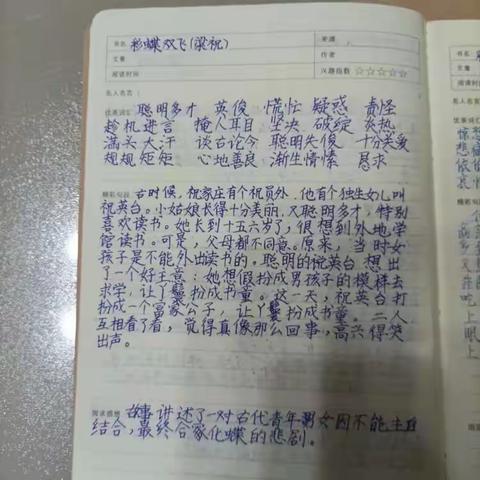 书名 彩蝶双飞(梁祝)
来源
文章
作者
阅读时间
兴趣指数 ☆☆☆☆☆
名人名言
优美词汇 聪明多才 英俊 慌忙 疑惑 责怪
趁机进言 掩人耳目 坚决 破绽 炎热
满头大汗 谈古论今 聪明失俊 十分关爱
规规矩矩 心地善良 渐生情愫 恳求
精彩句段 古时候,祝家庄有个祝员外,他有个独生女儿叫
祝英台。小姑娘长得十分美丽,又聪明多才,特别
喜欢读书。她长到十五六岁了,很想到外地学
馆读书。可是,父母都不同意。原来,当时女
孩子是不能外出读书的。聪明的祝英台想出
了一个好主意:她想假扮成男孩子的模样去
求学,让丫鬟扮成书童。这一天,祝英台打
扮成一个富家公子,让丫鬟扮成书童。二人
互相看了看,觉得真像那么回事,高兴得笑
出声。
阅读感想 故事讲述了一对古代青年男女因不能主
结合,最终合冢化蝶的悲剧。